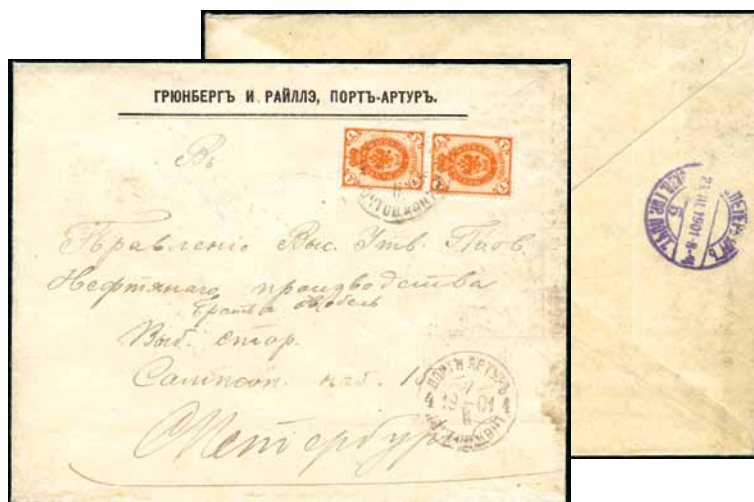 ГРЮНБЕРГЪ И РАЙЛЛЭ, ПОРТЪ-АРТУРЪ.
Въ
Правленіе Выс. Утв. Тов.
Нефтянаго производства
Братья Нобель
Выб. стор.
Сампсон. наб. 1
Петербургъ
ПОРТЪ АРТУРЪ
4 12 01
1901
Б